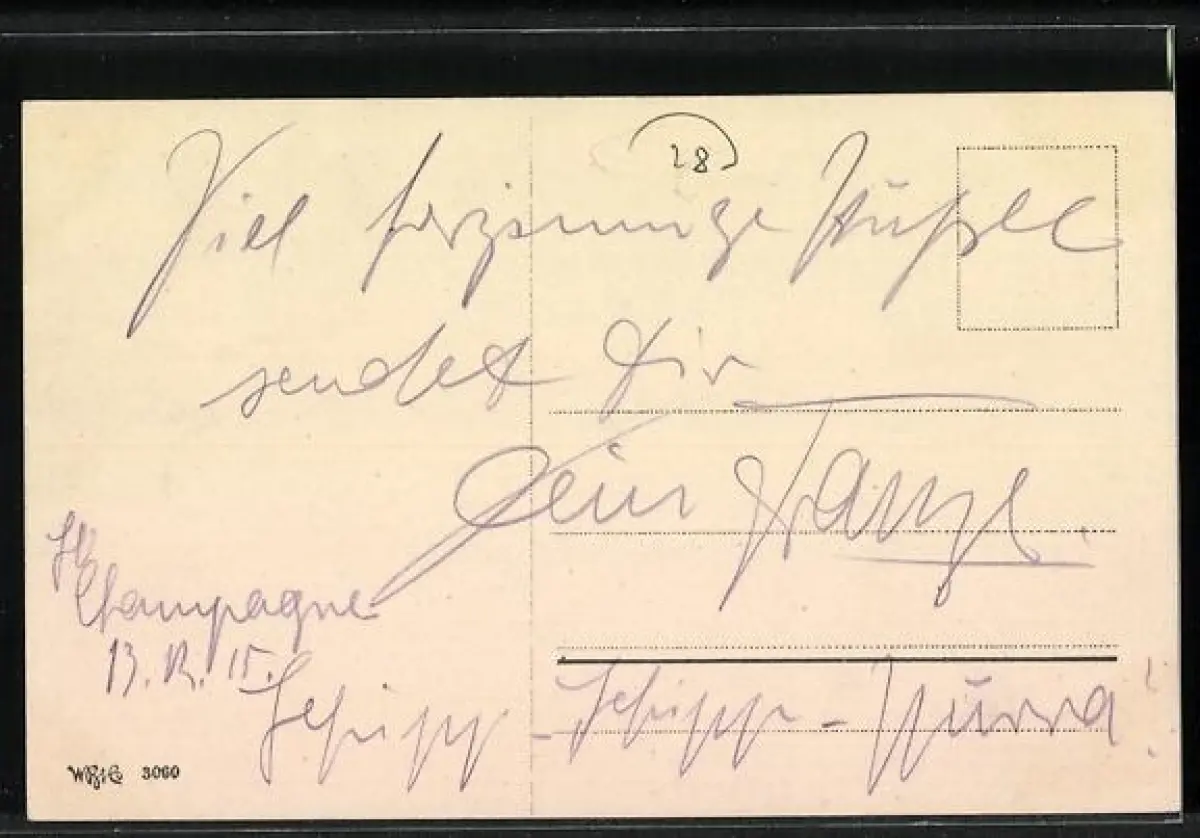 28
Viel herzinnige Küsse
sendet Dir
Dein Franz.
Champagne
13. 12. 15.
Schipp - Schipp - Hurra!
3060